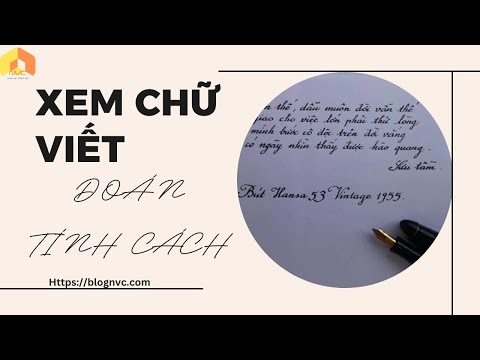 NVC
XEM CHỮ
VIẾT
ĐOÁN
TÍNH CÁCH
Https://blognvc.com
n thế, dẫu muôn đời vẫn thế
giao cho việc lớn phải thử lòng
mình bước cô độc trên đá vàng
có ngày nhìn thấy được hào quang.
Sưu tầm.
Bút Hansa 53 Vintage 1955.